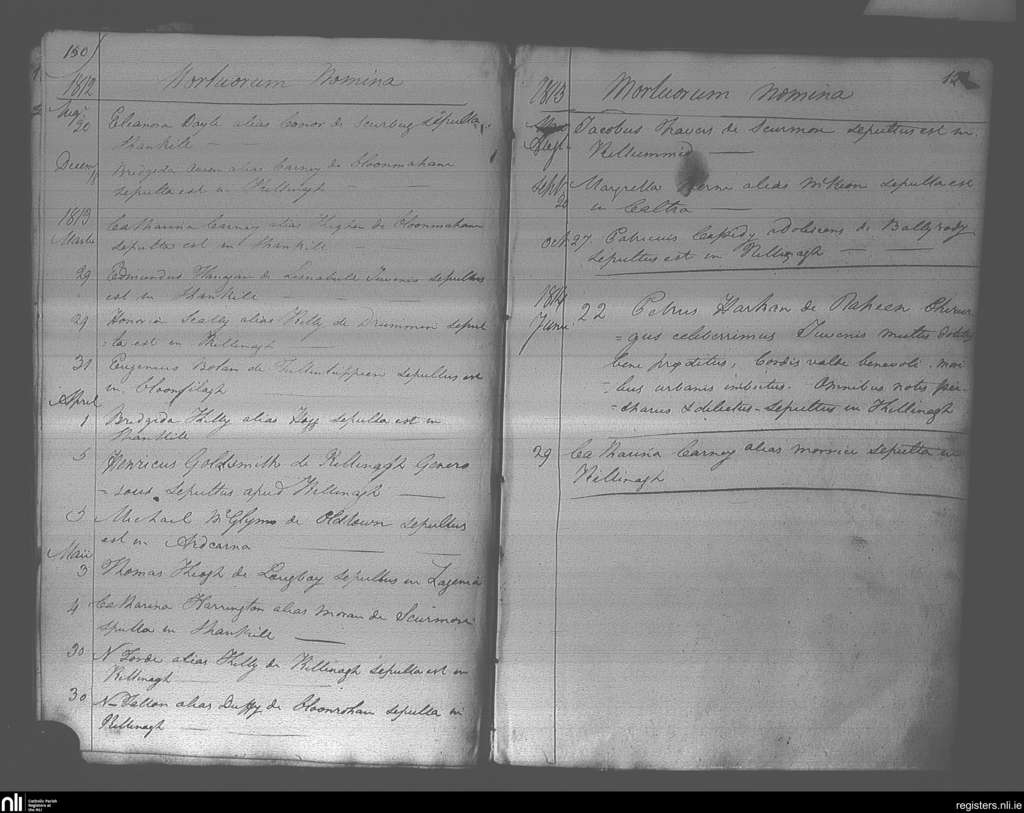 150
1812 Mortuorum Nomina
Aug 20 Eleanora Doyle alias Conor de Scurbeg sepulta
Shankile
Decem 18 Bridgida alias Carney de Cloonmahane
sepulta est in Killinagh
1813
Martii Catharina Carney alias Highan de Cloonmahane
sepulta est in Shankile
29 Edmundus Flanigan de Juvenis sepultus
est in Shankile
29 Honoria Scally alias Kelly de Drummin sepul
=ta est in Killinagh
31 Eugenius Bolan de sepultus est
in Cloonfilagh
April
1 Bridgida Kelly alias sepulta est in
Shankile
5 Henricus Goldsmith de Killinagh Genero
=sous sepultus apud Killinagh
3 Michael McGlynn de Oldtown sepultus
est in Ardcarna
Maii
3 Thomas Keogh de Longboy sepultus in
4 Catharina Harrington alias Moran de Scurmore
spulta in Shankile
30 N Forde alias Kelly de Killinagh sepulta est in
Killinagh
30 N Fallon alias Duffy de Cloonrohan sepulta in
Killinagh
1813 Mortuorum Nomina
Jacobus Travers de Scurmon sepultus est in
Killummid
Sept 20 Margretta alias McKeon sepulta est
in Caltra
Oct 27 Patricius Cassidy adolescens de Ballyroddy
sepultus est in Killinagh
1814
Juni 22 Petrus Harkan de Raheen Chirur
=gus celiberrimus Juvenis multis dotibus
bene proditus, Cordis valde benevoli mori
=bus urbanis imbutus. Omnibus notis per
=charus & dilectus - sepultus in Killinagh
29 Catharina Carney alias Morris sepulta in
Killinagh
nli
Catholic Parish
Registers at
the NLI
registers.nli.ie